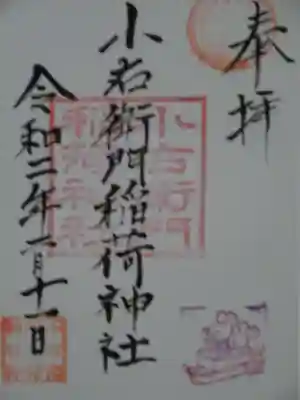 奉拝
小右衛門稲荷神社
令和二年一月十一日